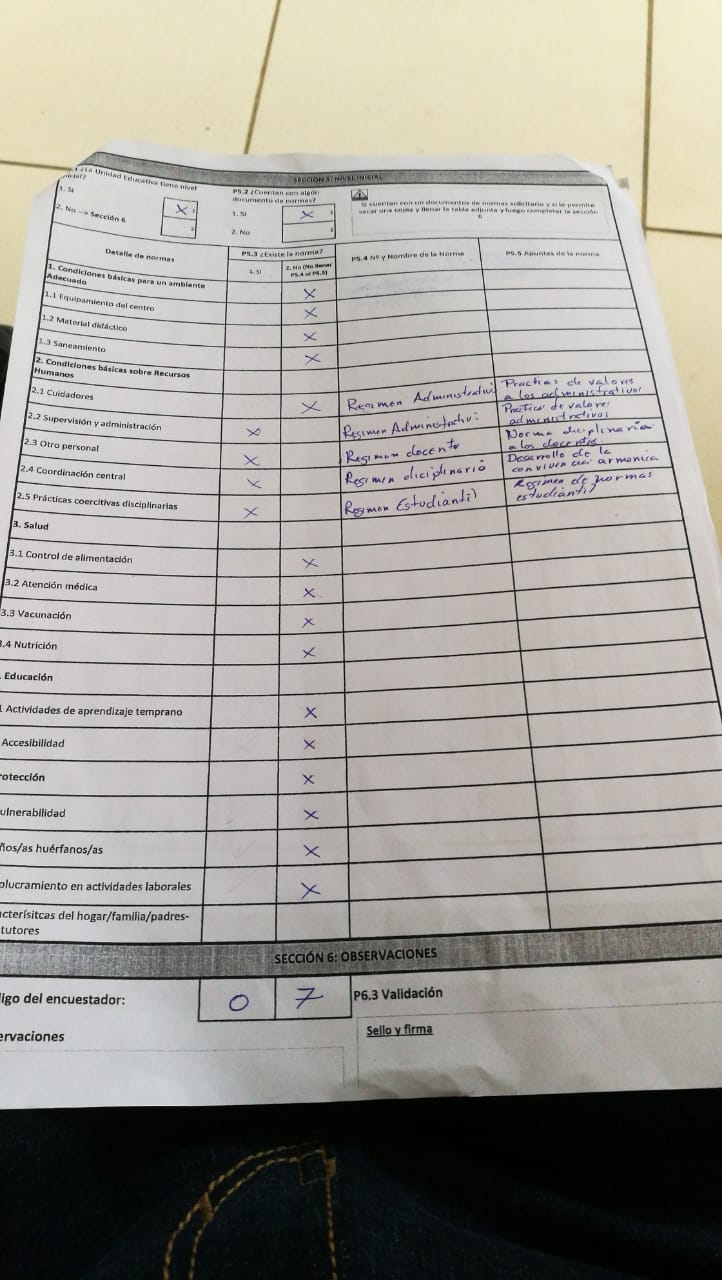 SECCIÓN 5: NIVEL INICIAL
¿La Unidad Educativa tiene nivel
inicial?
1. Si
X 1
2. No --> Sección 6
2
P5.2 ¿Cuentan con algún
documento de normas?
1. Si
X 1
2. No
2
Si cuentan con un documentos de normas solicitarlo y si le permite
sacar una copia y llenar la tabla adjunta y luego completar la sección
6
Detalle de normas
P5.3 ¿Existe la norma?
1. Si
2. No (No llenar
P5.4 ni P5.5)
P5.4 Nº y Nombre de la Norma
P5.5 Apuntes de la norma
1. Condiciones básicas para un ambiente
Adecuado
X
1.1 Equipamiento del centro
X
1.2 Material didáctico
X
1.3 Saneamiento
X
2. Condiciones básicas sobre Recursos
Humanos
2.1 Cuidadores
X
Regimen Administrativ
Practias de valores
a los administrativos
2.2 Supervisión y administración
X
Regimen Administrativ
Practicas de valores
administrativos
2.3 Otro personal
X
Regimen docente
Norma diciplinaria
a los docentes
2.4 Coordinación central
X
Regimen diciplinario
Desarrollo de la
armonica
2.5 Prácticas coercitivas disciplinarias
X
Regimen Estudiantil
Regimen de normas
estudiantil
3. Salud
3.1 Control de alimentación
X
3.2 Atención médica
X
3.3 Vacunación
X
3.4 Nutrición
X
. Educación
Actividades de aprendizaje temprano
X
Accesibilidad
X
rotección
X
ulnerabilidad
X
ños/as huérfanos/as
X
olucramiento en actividades laborales
X
cterísitcas del hogar/familia/padres-
tutores
SECCIÓN 6: OBSERVACIONES
digo del encuestador:
0 7
P6.3 Validación
ervaciones
Sello y firma